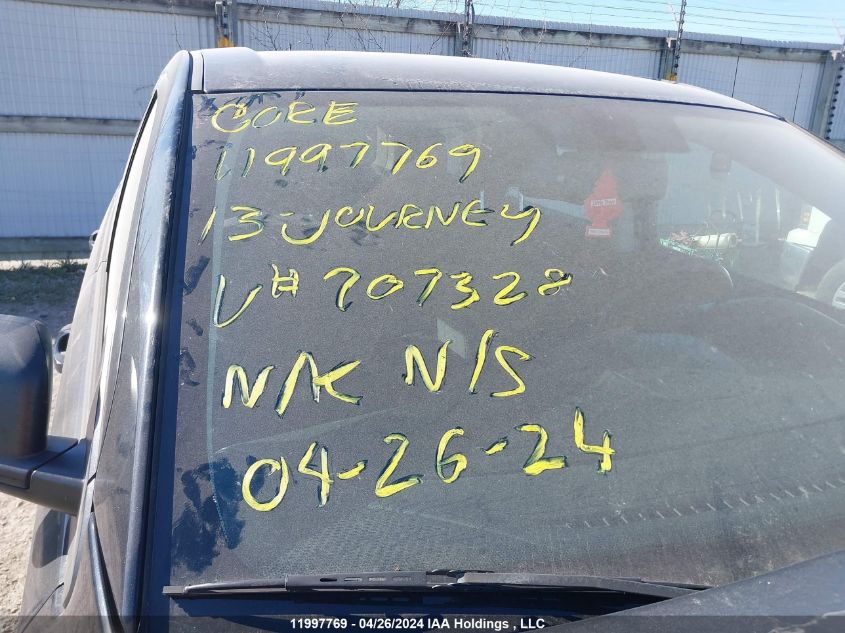 CORE
11997769
13-JOURNEY
V# 707328
N/K N/S
04-26-24
11997769 - 04/26/2024 IAA Holdings , LLC